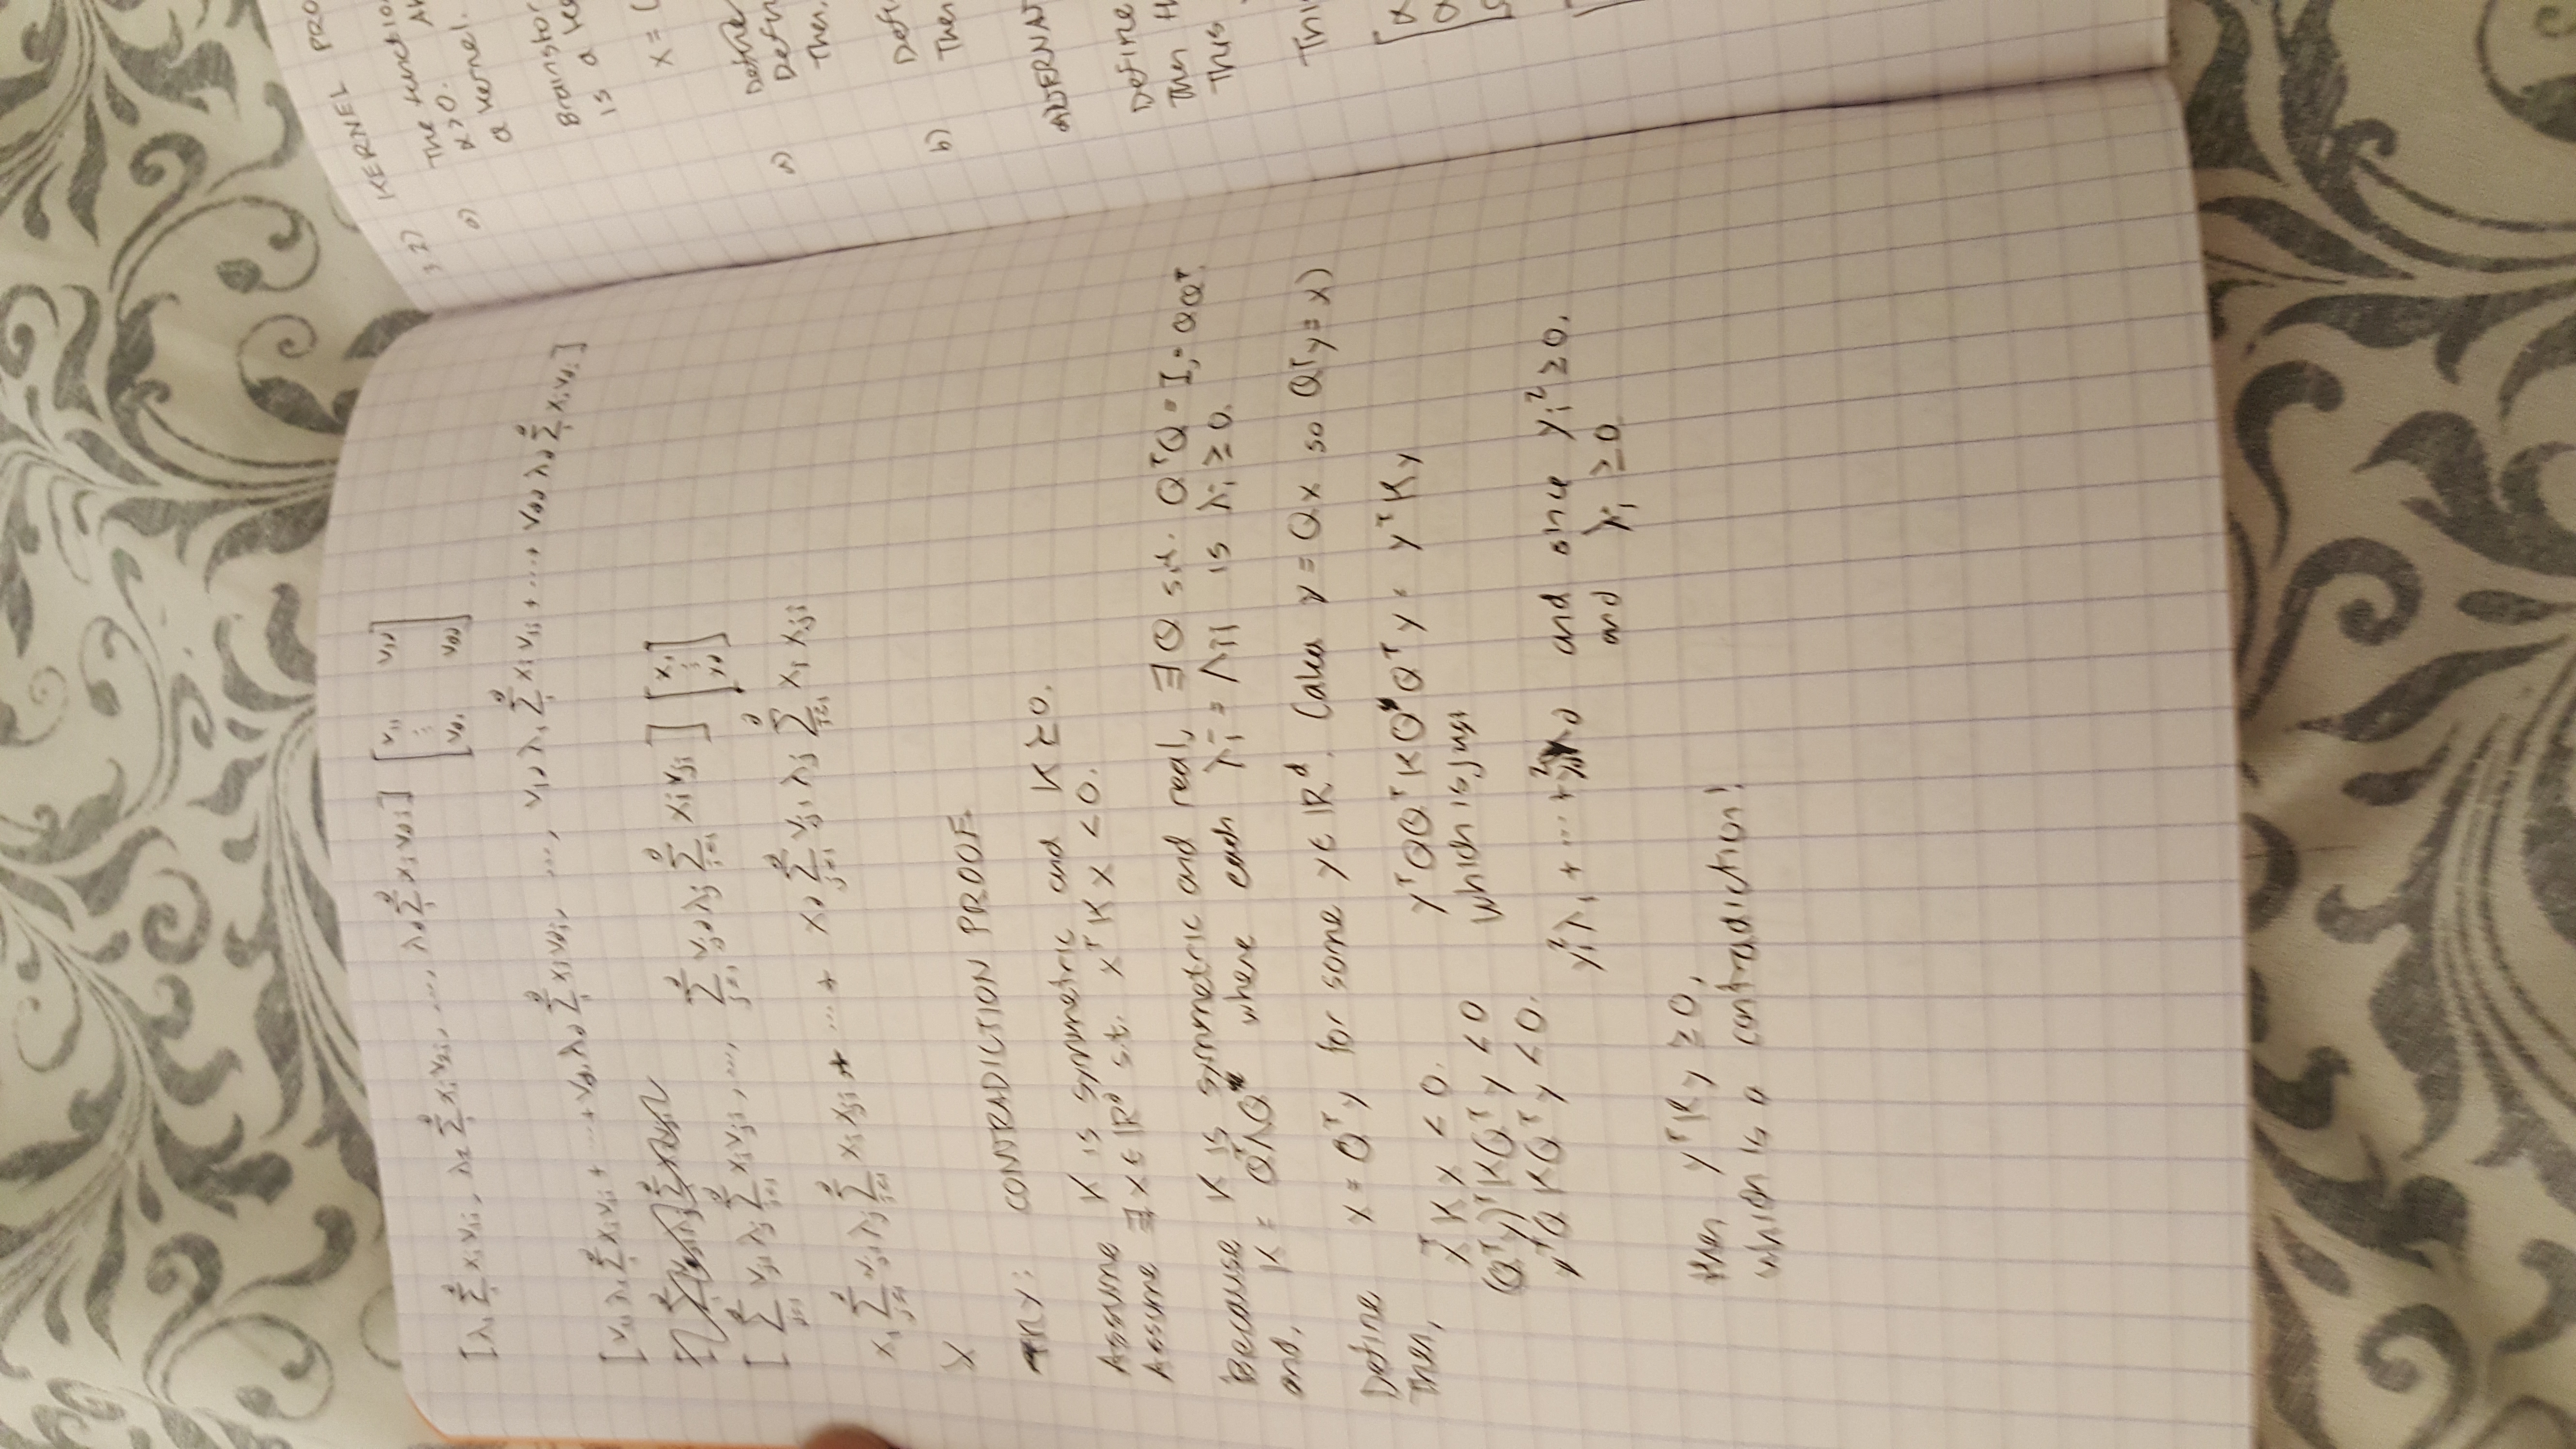 [λ₁ Σ xᵢv₁ᵢ, λ₂ Σ xᵢv₂ᵢ, ..., λd Σ xᵢvdᵢ] [v₁₁ v₁d ⋮ vd₁ vdd]
[v₁₁λ₁ Σ xᵢv₁ᵢ + ... + vd₁λd Σ xᵢvdᵢ, ..., v₁dλ₁ Σ xᵢv₁ᵢ + ... + vddλd Σ xᵢvdᵢ]
[Σ vj₁ λj Σ xᵢvjᵢ, ..., Σ vjd λj Σ xᵢvjᵢ] [x₁ ⋮ xd]
x₁ Σ vj₁ λj Σ xᵢ xjᵢ + ... + xd Σ vj₁ λj Σ xᵢ xjᵢ
X
TRY: CONTRADICTION PROOF
Assume K is symmetric and K ⪰ 0.
Assume ∃ x ∈ ℝᵈ s.t. xᵀKx < 0.
Because K is symmetric and real, ∃ Q s.t. QᵀQ = I = QQᵀ.
and, K = QᵀΛQ where each λᵢ = Λᵢᵢ is λᵢ ≥ 0.
Define x = Qᵀy for some y ∈ ℝᵈ. (aka y = Qx so Qᵀy = x)
Then,
xᵀKx < 0.
(Qᵀy)ᵀKQᵀy < 0
yᵀQKQᵀy < 0.
yᵀQQᵀKQQᵀy = yᵀKy
which is just
y₁²λ₁ + ... + yd²λd and since yᵢ² ≥ 0.
and λᵢ ≥ 0
then yᵀKy ≥ 0,
which is a contradiction!
3.2) KERNEL PRO
a) The functio
α>0.
a kernel.
Brainstor
is a ke
x = (
a) Define
Defin
Then,
b) Defi
Then
ALTERNAT
Define
Then th
This
Thi